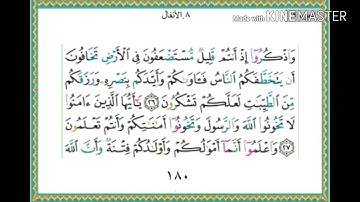 ٨. الأنفال
Made with KINEMASTER
وَاذْكُرُوٓا إِذْ أَنتُمْ قَلِيلٌ مُّسْتَضْعَفُونَ فِى الْأَرْضِ تَخَافُونَ
أَن يَتَخَطَّفَكُمُ النَّاسُ فَـَٔاوَىٰكُمْ وَأَيَّدَكُم بِنَصْرِهِۦ وَرَزَقَكُم
مِّنَ الطَّيِّبَٰتِ لَعَلَّكُمْ تَشْكُرُونَ ٢٦ يَٰٓأَيُّهَا الَّذِينَ ءَامَنُوا
لَا تَخُونُوا اللَّهَ وَالرَّسُولَ وَتَخُونُوٓا أَمَٰنَٰتِكُمْ وَأَنتُمْ تَعْلَمُونَ
٢٧ وَاعْلَمُوٓا أَنَّمَآ أَمْوَٰلُكُمْ وَأَوْلَٰدُكُمْ فِتْنَةٌ وَأَنَّ اللَّهَ
١٨٠